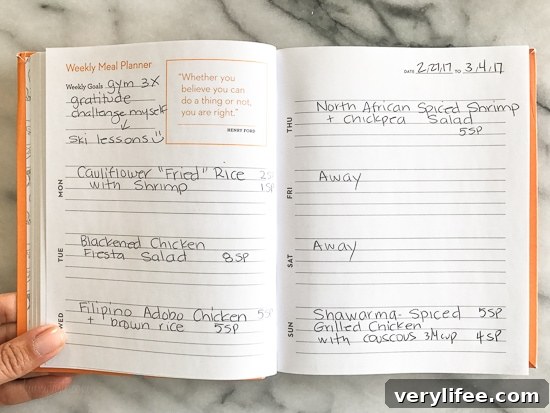 Weekly Meal Planner
Weekly Goals gym 3x
gratitude
challenge myself
ski lessons
"Whether you
believe you can
do a thing or not,
you are right."
HENRY FORD
MON
Cauliflower "Fried" Rice 2SP
with Shrimp 1SP
TUE
Blackened Chicken
Fiesta Salad 8SP
WED
Filipino Adobo Chicken 5SP
+ brown rice 5SP
DATE 2/27/17 TO 3/4/17
THU
North African Spiced Shrimp
+ Chickpea Salad
5SP
FRI
Away
SAT
Away
SUN
Shawarma-Spiced 5SP
Grilled Chicken
with couscous 3/4 cup 4SP
verylifee.com